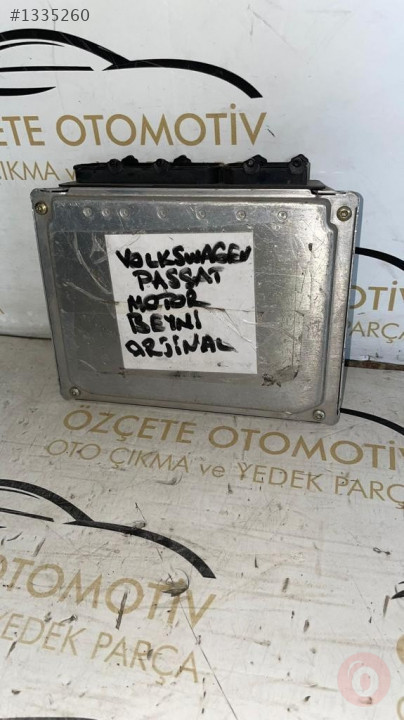 #1335260
ÖZÇETE OTOMOTİV
ÇIKMA ve
VOLKSWAGEN
PASSAT
MOTOR
BEYNİ
ORJİNAL
PARÇA
ÖZÇETE OTOMOTİV
OTO ÇIKMA ve YEDEK PARÇA
OTOMOTİV
YEDEK PARÇA